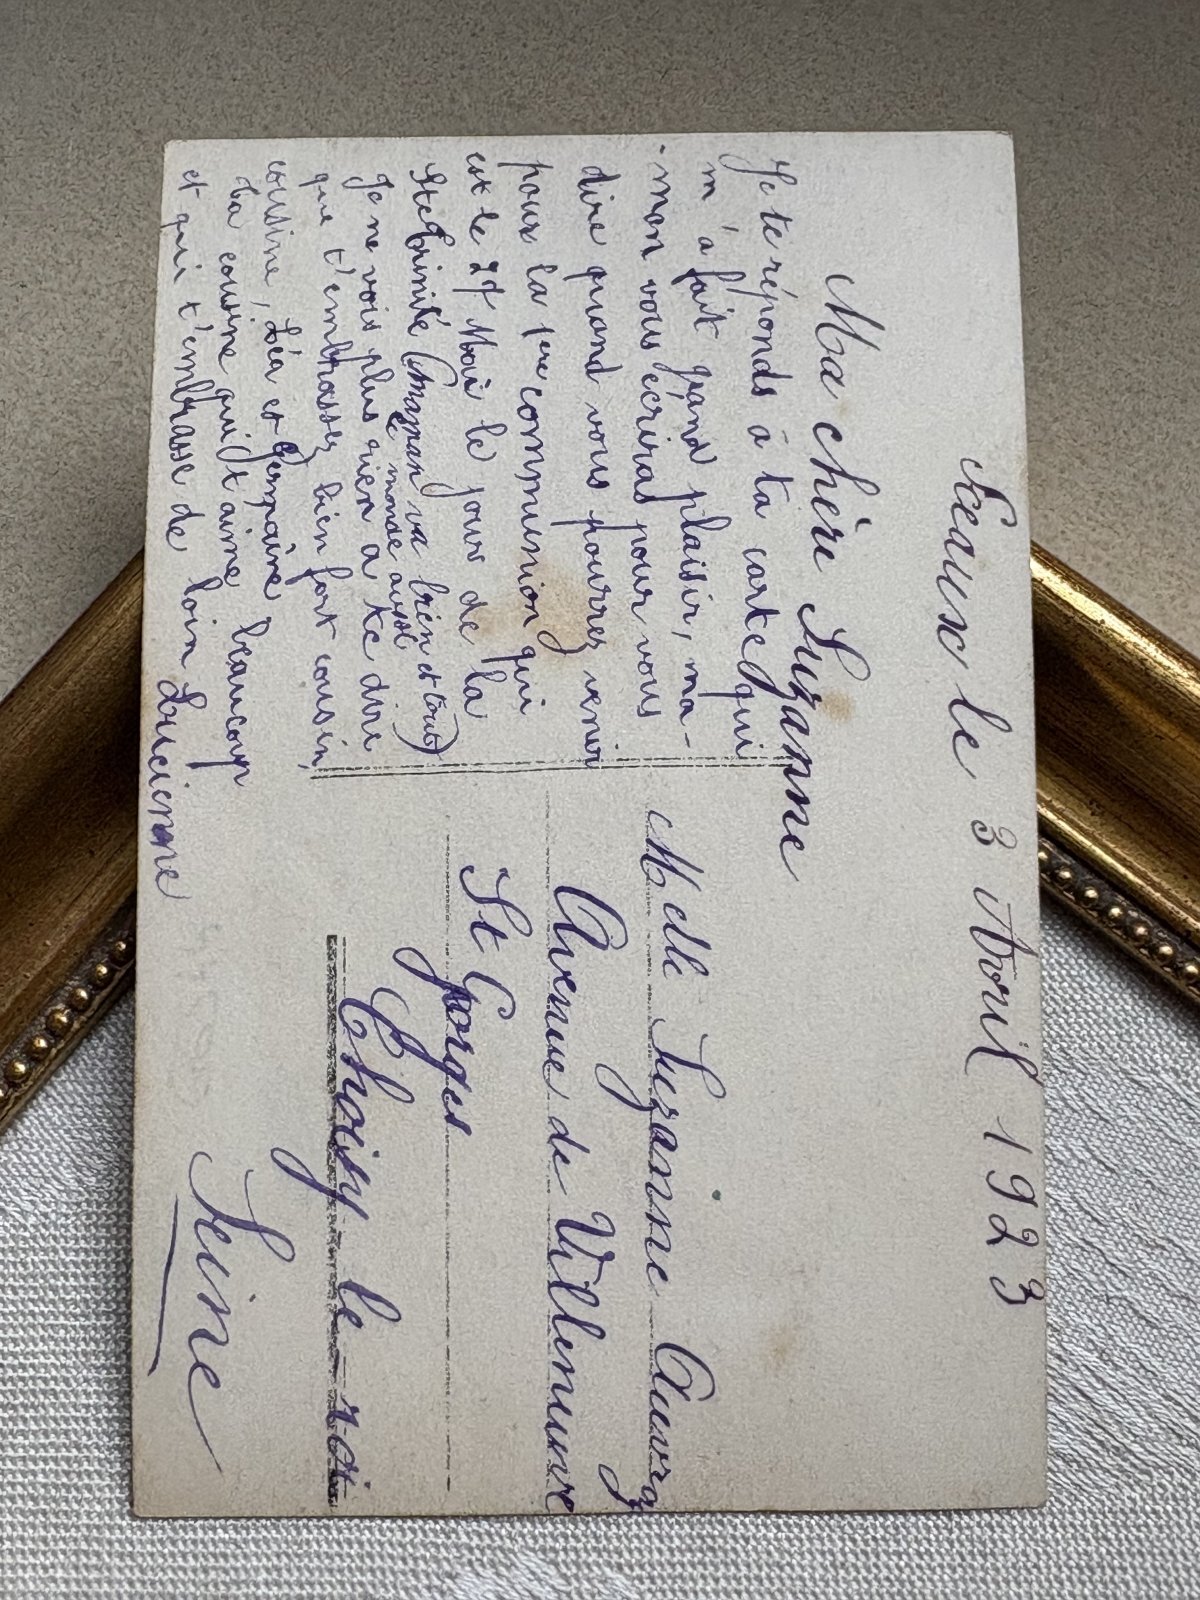 Sceaux le 3 Avril 1923
Ma chère Suzanne
Je te réponds à ta carte qui
m'a fait grand plaisir, ma-
man vous écriras pour vous
dire quand vous pourrez venir
pour la 1ère communion qui
est le 27 Mai le jour de la
Ste Trinité (maman va bien et tous)
le monde aussi
Je ne vois plus rien a te dire
que t'embrasser bien fort cousin,
cousine, Léa et Germaine
Ta cousine qui t'aime beaucoup
et qui t'embrasse de loin Lucienne
Melle Suzanne
Avenue de Villeneuve
St Gorges
Choisy le roi
Seine